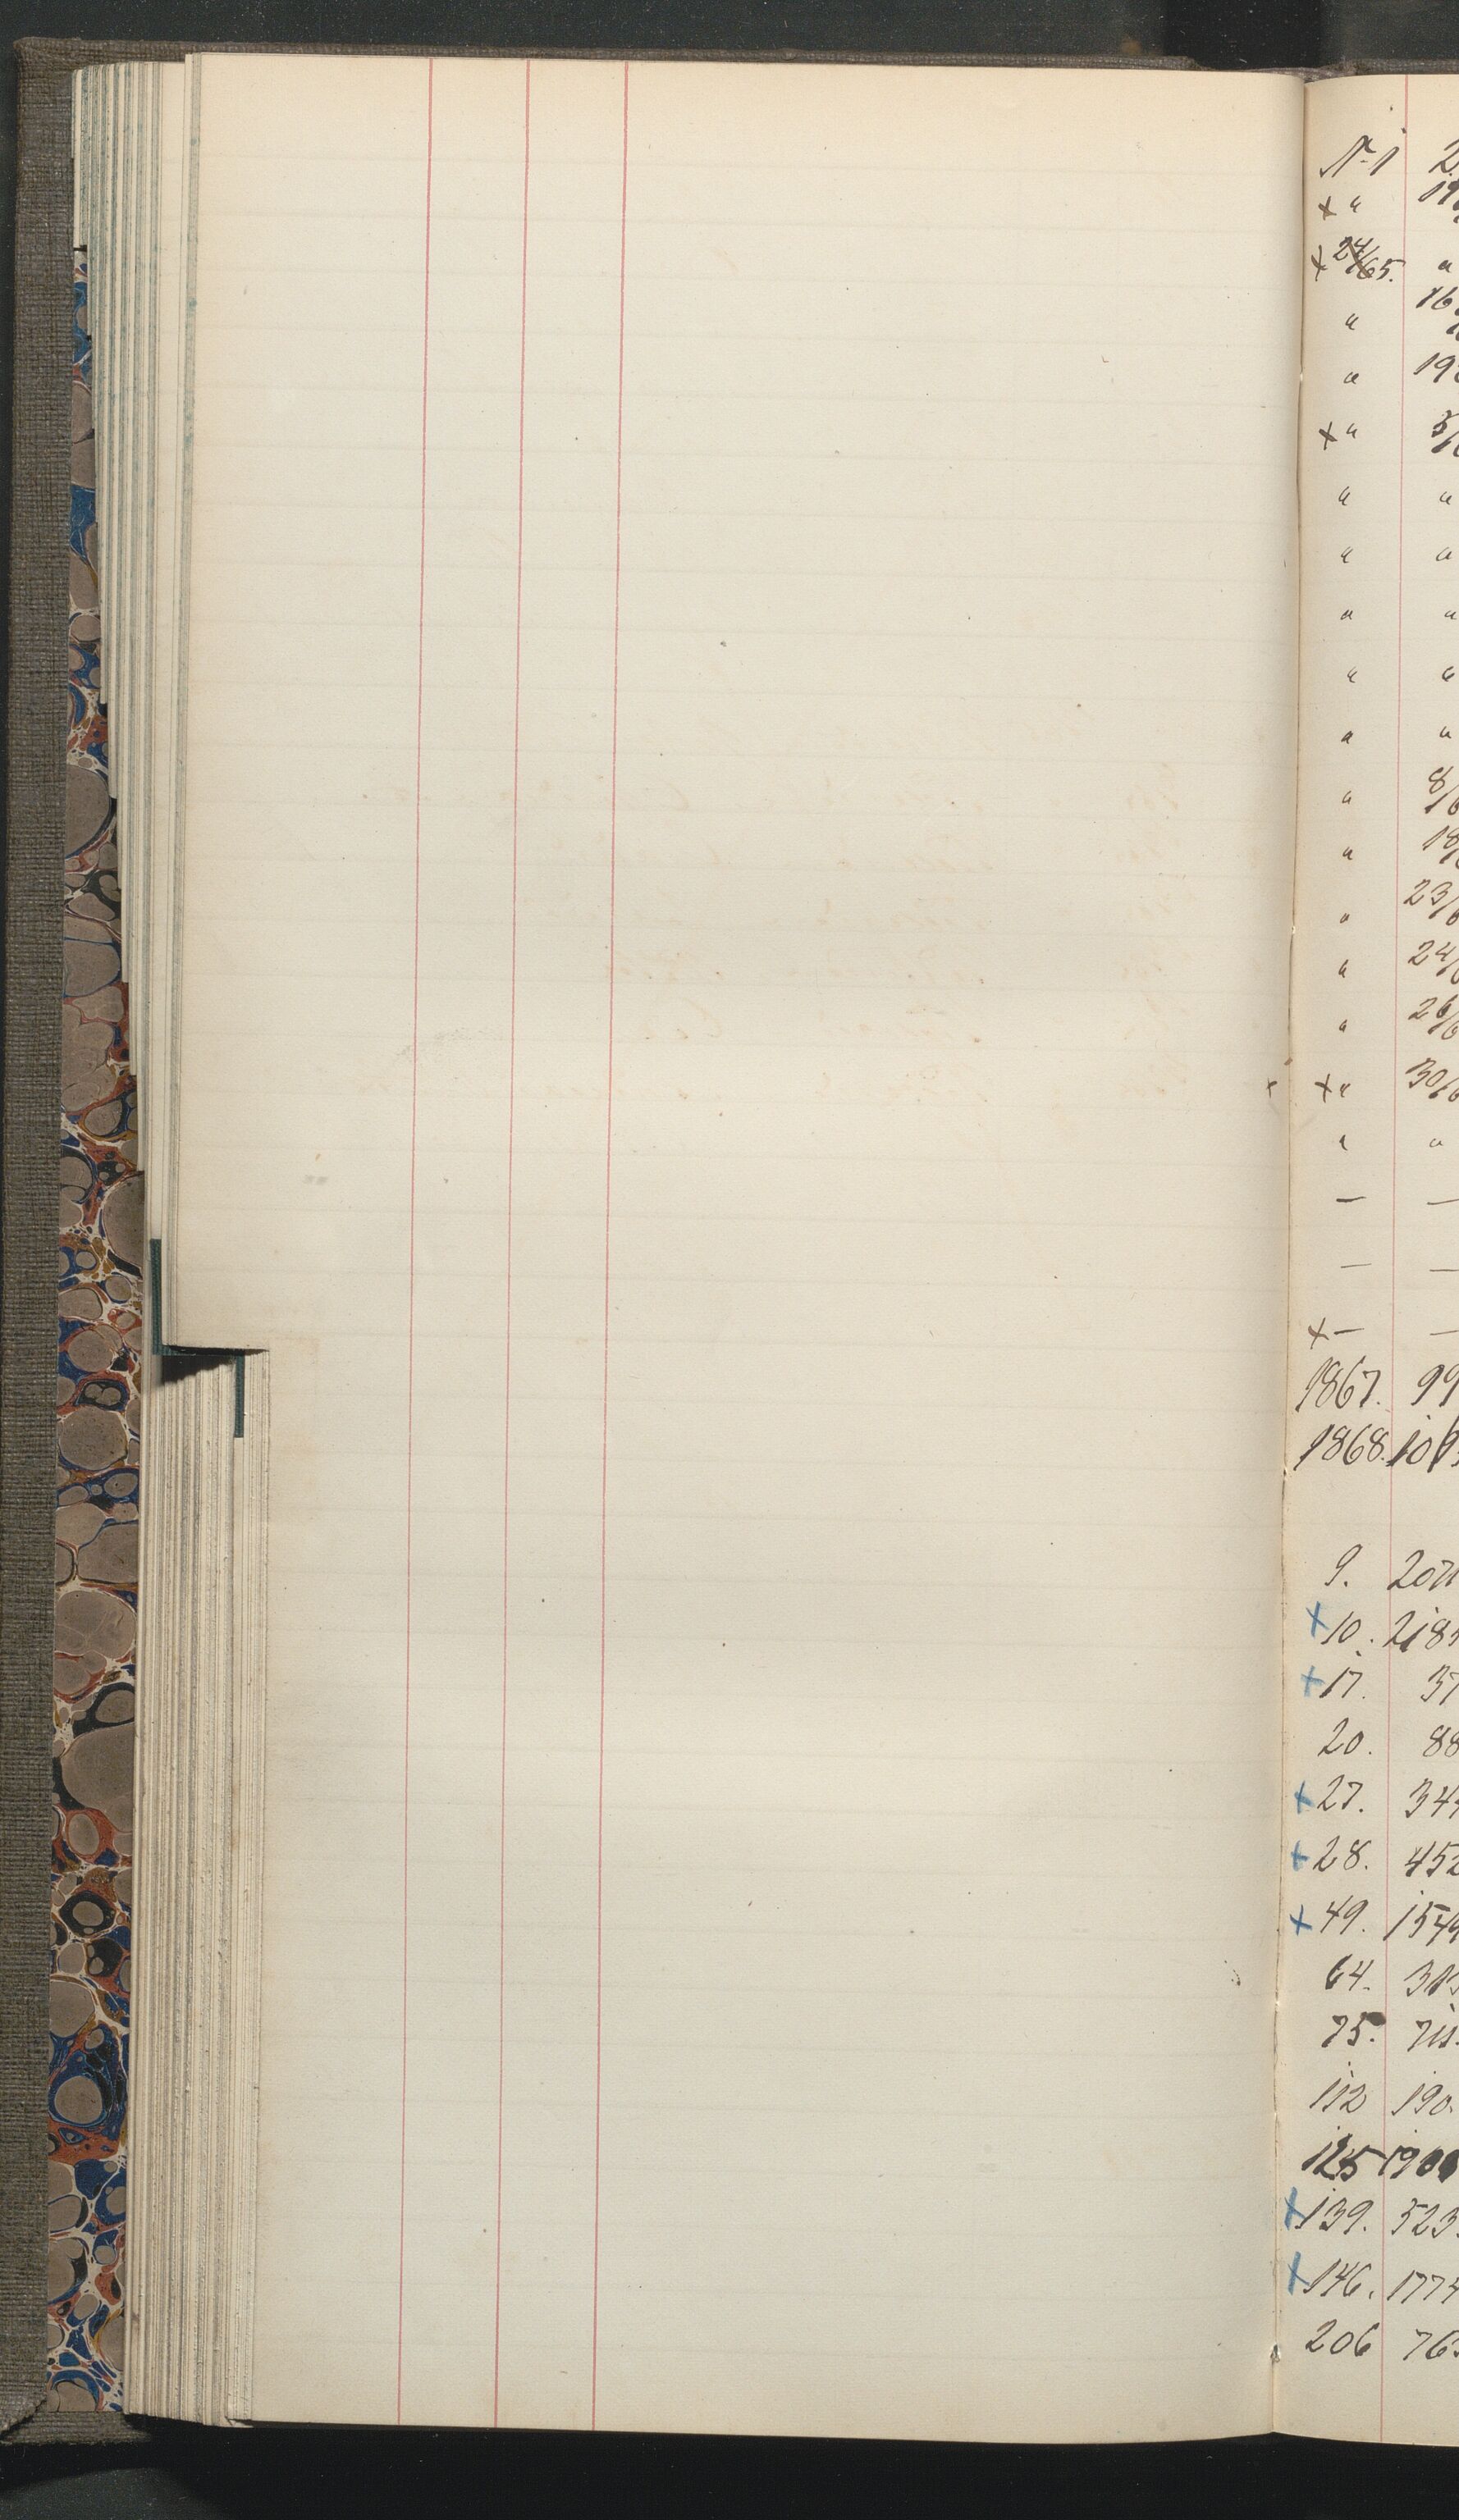 N. 1 2
× " 19
× 24/65. "
" 16
" 19
× " 5/
" "
" "
" "
" "
" "
" 8/6
" 18/
" 23/6
" 24/6
" 26/6
× " 30/6
" "
— —
— —
× — —
1867. 99
1868. 10
9. 207
× 10. 218
× 17. 37
20. 88
× 27. 344
× 28. 452
× 49. 1549
64. 313
75. 711
112 190.
125 190
× 139. 523.
× 146. 1774
206 76